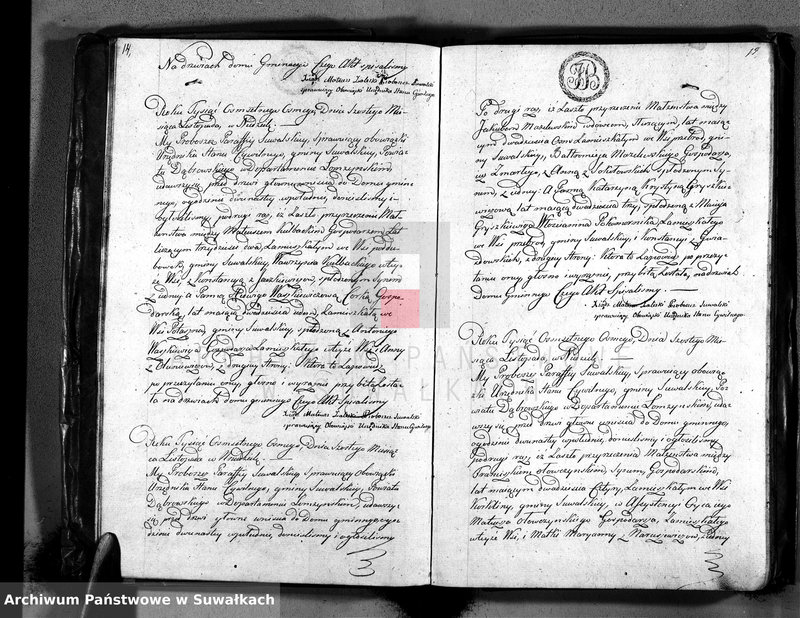 14,
Na drzwiach domu Gminnego Czego Akt spisalismy
Xiądz Mateusz Zaleski Proboszcz Suwalski
sprawuiący Obowiązki Urzędnika Stanu Cywilnego
Roku Tysiąc Osmsetnego Osmego, Dnia Szostego Mie-
siąca Listopada, w Niedzielę
My Proboszcz Paraffyi Suwalskiey, Sprawuiący obowiązki
Urzędnika Stanu Cywilnego, gminy Suwalskiey, Powia-
tu Dąbrowskiego w Departamencie Łomzynskim,
udawszy się przed drzwi główne weyscia do Domu gmin-
nego, o godzinie dwunastey w południe, donieslismy i o-
głosilismy, po drugi raz, iz Zaszło przyrzeczenie Mał-
zenstwa między Mateuszem Kulbackim Gospodarzem Lat
liczącym trzydziesci dwa, Zamieszkałym we Wsi
gminy Suwalskiey, Wawrzynca Kulbackiego w teyze
Wsi, z Konstancyą z Jaszkiewiczow, spłodzonym Synem
z iedney: a Panną Wasilewiczową Corką Gospo-
darską, lat maiącą dwadziescia ieden, Zamieszkałą we
Wsi Potaszni, gminy Suwalskiey, spłodzoną z Antoniego
Gospodarza Zamieszkałego w teyze Wsi i Anny
z drugiey Strony: Ktora to Zapowiedz
po przeczytaniu oney głosno i wyraznie przybitą Zosta-
ła na drzwiach domu gminnego Czego Akt Spisalismy
Xiądz Mateusz Zaleski Proboszcz Suwalski
sprawuiący Obowiązki Urzędnika Stanu Cywilnego
Roku Tysiąc Osmsetnego Osmego, Dnia Szostego Miesią-
ca Listopada w Niedzielę
My Proboszcz Paraffyi Suwalskiey Sprawuiący Obowiązki
Urzędnika Stanu Cywilnego, gminy Suwalskiey, Powiatu
Dąbrowskiego w Departamencie Łomzynskim, udawszy
się przed drzwi główne weyscia do Domu gminnego o go-
dzinie dwunastey w południe, donieslismy i ogłosilismy
15
Po drugi raz, iz Zaszło przyrzeczenie Małzenstwa między
Jakubem Mozelewskim wdowcem, Tkaczem, lat maią-
cym dwadziescia Zamieszkałym we Wsi Przebrod, gmi-
ny Suwalskiey, Bartłomieia Mozelewskiego Gospodarza,
w Zmarłego, z Anną z Sokołowskich spłodzonym Sy-
nem, z iedney: a Panną Katarzyną Krystyną Gryszkie-
wiczową lat maiącą dwadziescia trzy, spłodzoną z Macieja
Gryszkiewicza Zamieszkałego
we Wsi Przebrod, gminy Suwalskiey i Konstancyi z
z drugiey Strony: Ktora to Zapowiedz po przeczy-
taniu oney głosno i wyraznie, przybitą Została, na drzwiach
Domu Gminnego Czego Akt Spisalismy.
Xiądz Mateusz Zaleski Proboszcz Suwalski
sprawuiący Obowiązki Urzędnika Stanu Cywilnego.
Roku Tysiąc Osmsetnego Osmego, Dnia Szostego Mie-
siąca Listopada, w Niedzielę
My Proboszcz Paraffyi Suwalskiey, Sprawuiący obowią-
zki Urzędnika Stanu Cywilnego, gminy Suwalskiey, Po-
wiatu Dąbrowskiego w Departamencie Łomzynskim, udaw-
szy się przed drzwi główne weyscia do Domu gminnego
o godzinie dwunastey w południe, donieslismy i ogłosilismy,
po drugi raz, iz Zaszło przyrzeczenie Małzenstwa między
Franciszkiem Otowczynskim, Synem, Gospodarskim,
lat maiącym dwadziescia Cztery, Zamieszkałym we Wsi
gminy Suwalskiey, w Assystencyi Oyca iego
Mateusza Otowczynskiego Gospodarza, Zamieszkałego
w teyze Wsi, i Matki Maryanny z z iedney
Archiwum Państwowe w Suwałkach